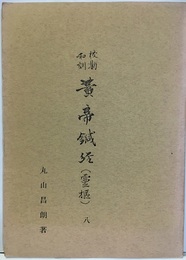 校勘
和訓
黄帝鍼経(靈樞)八
丸山昌朗著